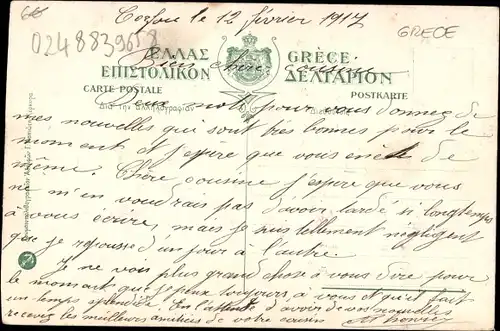 Corfou le 12 février 1917
GRECE
0248839658
ΕΛΛΑΣ GRÈCE
Bien chère cousine
ΕΠΙΣΤΟΛΙΚΟΝ ΔΕΛΤΑΡΙΟΝ
CARTE POSTALE POSTKARTE
Διὰ τὴν ἀλληλογραφίαν Διεύθυνσις
Deux mots pour vous donner de
mes nouvelles qui sont très bonnes pour le
moment et j'espère que vous de
même. Chère cousine j'espère que vous
ne m'en voudrais pas d'avoir tardé si longtemps
à vous écrire, mais je suis tellement négligent
que je repousse d'un jour à l'autre.
Je ne vois plus grand chose à vous dire pour
le moment que je peux toujours à vous et qu'il fait
un temps splendide. En l'attente d'avoir de vos nouvelles
recevez les meilleurs amitiés de votre cousin